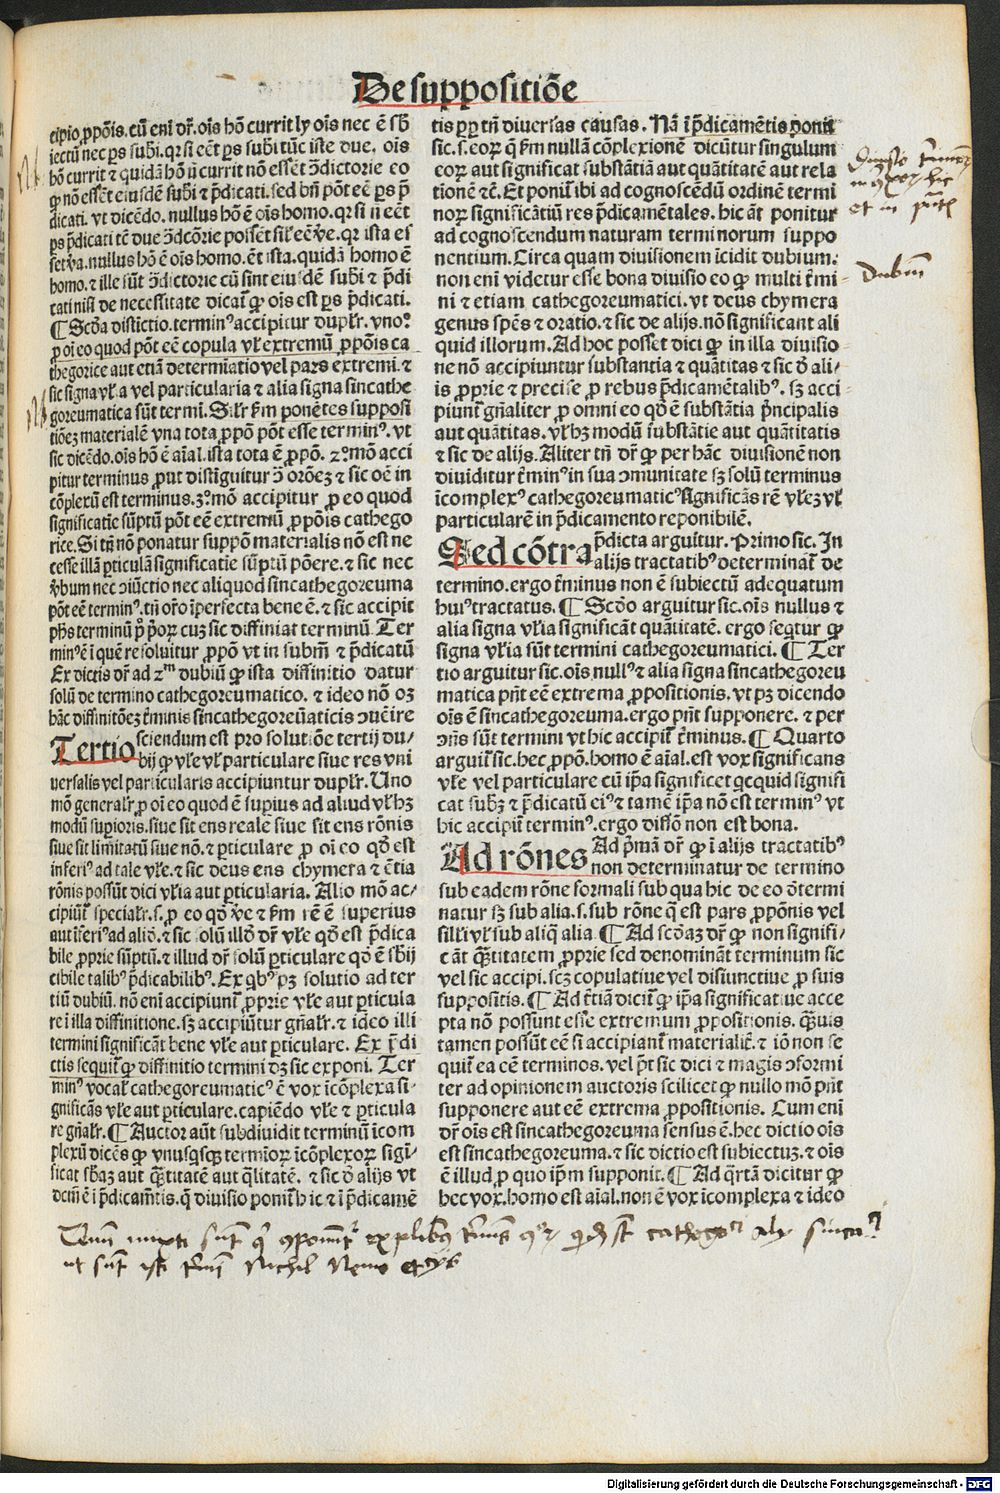 De suppositiõe
cipio ꝓpõis. cũ enĩ dr̃. oĩs hõ currit ly oĩs nec ẽ sb̃
iectũ nec ꝑs subĩ. qꝛ si eẽt ꝑs subĩ tũc iste due. oĩs
hõ currit ⁊ quidã hõ nõ currit nõ essẽt ↄ̃dictorie eo
ꝙ nõ essẽt eiusdẽ subĩ ⁊ p̃dicati. sed bñ põt eẽ ꝑs p̃
dicati. vt dicẽdo. nullus hõ ẽ oĩs homo. qꝛ si nõ eẽt
ꝑs p̃dicati tẽ due ↄ̃dcõrie possẽt sil̃ eẽ ṽe. qꝛ ista es
set ṽa. nullus hõ ẽ oĩs homo. ẽt ista. quidã homo ẽ
homo. ⁊ ille sũt ↄ̃dictorie cũ sint eiusdẽ subĩ ⁊ p̃di
cati nisi de necessitate dicat̃ ꝙ oĩs est ꝑs p̃dicati.
¶ Scđa distictio. terminꝰ accipitur dupl̃r. vnoº
ꝓ oĩ eo quod põt eẽ copula vl̃ extremũ ꝓpõis ca
thegorice aut etiã determiatio vel pars extremi. ⁊
sic signa vl̃ia vel particularia ⁊ alia signa sincathe
goreumatica sũt termi. Sil̃r ẜm ponẽtes supposi
tiõeꝫ materialẽ vna tota ꝓpõ põt esse terminꝰ. vt
sic dicẽdo. oĩs hõ ẽ aĩal. ista tota ẽ ꝓpõ. 2º mõ acci
pitur terminus prout distĩguitur ↄ̃ orõeꝫ ⁊ sic oẽ in
cõplexũ est terminus. 3º mõ accipitur ꝓ eo quod
significatiẽ sũptũ põt eẽ extremũ ꝓpõis cathego
rice. Si tñ nõ ponatur suppõ materialis nõ est ne
cesse illã ꝑticulã significatie sũptũ põere. ⁊ sic nec
v̾bum nec ↄiũctio nec aliquod sincathegoreuma
põt eẽ terminꝰ. tñ or̃o ĩperfecta bene ẽ. ⁊ sic accipit
ph̃s terminũ p̃ p̃oꝝ cuꝫ sic diffiniat terminũ. Ter
minꝰ ẽ ĩ quẽ resoluitur ꝓpõ vt in subm̃ ⁊ p̃dicatũ
Ex dictis dr̃ ad 2ᵐ dubiũ ꝙ ista diffinitio datur
solũ de termino cathegoreumatico. ⁊ ideo nõ oꝫ
hãc diffinitõeꝫ t̃minis sincathegoreũaticis ↄuẽire
Tertio sciendum est pro solutiõe tertij du/
bij ꝙ vl̃e vl̃ particulare siue res vni
versalis vel particularis accipiuntur dupl̃r. Uno
mõ general̃r ꝓ oĩ eo quod ẽ supius ad aliud vl̃ hꝫ
modũ supioris. siue sit ens reale siue sit ens rõnis
siue sit limitatũ siue nõ. ⁊ ꝑticulare ꝓ oĩ eo qđ est
inferiꝰ ad tale vl̃e. ⁊ sic deus ens chymera ⁊ ẽtia
rõnis possũt dici vl̃ia aut ꝑticularia. Alio mõ ac/
cipiũt̃ special̃r. s. ꝓ eo qđ ṽe ⁊ ẜm rẽ ẽ superius
aut ĩferiꝰ ad aliđ. ⁊ sic solũ illđ dr̃ vl̃e qđ est p̃dica
bile ꝓprie sũptũ. ⁊ illud dr̃ solũ ꝑticulare qđ ẽ sb̃ij
cibile talibꝰ p̃dicabilibꝰ. Ex qbꝰ pꝫ solutio ad ter
tiũ dubiũ. nõ enĩ accipiunt̃ ꝓprie vl̃e aut ꝑticula
re ĩ illa diffinitione. sꝫ accipiũtur gñal̃r. ⁊ ideo illi
termini significãt bene vl̃e aut ꝑticulare. Ex p̃di
ctis sequit̃ ꝙ diffinitio termini dꝫ sic exponi. Ter
minꝰ vocal̃ cathegoreumaticꝰ ẽ vox ĩcõplexa si-
gnificãs vl̃e aut ꝑticulare. capiẽdo vl̃e ⁊ ꝑticula
re gñal̃r. ¶ Auctor aũt subdiuidit terminũ ĩcom
plexũ dicẽs ꝙ vnusqsqꝫ termioꝝ ĩcõplexoꝝ sigĩ-
ficat sb̃aꝫ aut qñtitatẽ aut q̃litatẽ. ⁊ sic đ alijs vt
dcm̃ ẽ ĩ p̃dicam̃tis. q̃ diuisio ponit̃ hic ⁊ ĩ p̃dicamẽ
tis ꝑp tñ diuersas causas. Nã ĩ p̃dicamẽtis ponit̃
sic. s. eoꝝ q̃ ẜm nullã cõplexionẽ dicũtur singulum
eoꝝ aut significat substãtiã aut quãtitatẽ aut rela
tionẽ ⁊c̃. Et ponit̃ ibi ad cognoscẽdũ ordinẽ termi
noꝝ significãtiũ res p̃dicamẽtales. hic ãt ponitur
ad cognoscendum naturam terminorum suppo
nentium. Circa quam diuisionem ĩcidit dubium.
non enĩ videtur esse bona diuisio eo ꝙ multi t̃mi-
ni ⁊ etiam cathegoreumatici. vt deus chymera
genus spẽs ⁊ oratio. ⁊ sic de alijs. nõ significant ali
quid illorum. Ad hoc posset dici ꝙ in illa diuisio-
ne nõ accipiuntur substantia ⁊ quãtitas ⁊ sic đ ali/
is ꝓprie ⁊ precise ꝓ rebus p̃dicamẽtalibꝰ. sꝫ acci
piunt̃ gñaliter ꝓ omni eo qđ ẽ substãtia p̃ncipalis
aut quãtitas. vl̃ hꝫ modũ substãtie aut quãtitatis
⁊ sic de alijs. Aliter tñ dr̃ ꝙ per hãc diuisionẽ non
diuiditur t̃minꝰ in sua ↄmunitate sꝫ solũ terminus
ĩcomplexꝰ cathegoreumaticꝰ significãs rẽ vl̃eꝫ vl̃
particularẽ in p̃dicamento reponibilẽ.
Sed cõtra p̃dicta arguitur. Primo sic. In
alijs tractatibꝰ determinat̃ de
termino. ergo t̃minus non ẽ subiectũ adequatum
huiꝰ tractatus. ¶ Scđo arguitur sic. oĩs nullus ⁊
alia signa vl̃ia significãt quãtitatẽ. ergo seqtur ꝙ
signa vl̃ia sũt termini cathegoreumatici. ¶ Ter
tio arguitur sic. oĩs nullꝰ ⁊ alia signa sincathegoreu
matica pñt eẽ extrema ꝓpositionis. vt pꝫ dicendo
oĩs ẽ sincathegoreuma. ergo pñt supponere. ⁊ per
ↄñs sũt termini vt hic accipit̃ t̃minus. ¶ Quarto
arguit̃ sic. hec ꝓpõ. homo ẽ aĩal. est vox significans
vl̃e vel particulare cũ ip̃a significet qcquid signifi
cat subꝫ ⁊ p̃dicatũ eiꝰ ⁊ tamẽ ip̃a nõ est terminꝰ vt
hic accipit̃ terminꝰ. ergo diffõ non est bona.
Ad rõnes Ad p̃mã dr̃ ꝙ ĩ alijs tractatibꝰ
non determinatur de termino
sub eadem rõne formali sub qua hic de eo đtermi
natur sꝫ sub alia. s. sub rõne q̃ est pars ꝓpõnis vel
sill̃i vl̃ sub aliq̃ alia. ¶ Ad scđaꝫ dr̃ ꝙ non signifi/
cãt qñtitatem ꝓprie sed denominãt terminum sic
vel sic accipi. scꝫ copulatiue vel disiunctiue ꝓ suis
suppositis. ¶ Ad t̃tiã dicit̃ ꝙ ip̃a significatiue acce
pta nõ possunt esse extremum ꝓpositionis. qũis
tamen possũt eẽ si accipiant̃ materialit̃. ⁊ iõ non se
quit̃ ea eẽ terminos. vel p̃t sic dici ⁊ magis ↄformi
ter ad opinionem auctoris scilicet ꝙ nullo mõ pñt
supponere aut eẽ extrema ꝓpositionis. Cum enĩ
dr̃ oĩs est sincathegoreuma sensus ẽ. hec dictio oĩs
est sincathegoreuma. ⁊ sic dictio est subiectuꝫ. ⁊ oĩs
ẽ illud ꝓ quo ip̃m supponit. ¶ Ad q̃rtã dicitur ꝙ
hec vox. homo est aĩal. non ẽ vox ĩcomplexa ⁊ ideo
et in
Dubiũ
sunt
ut sunt isti Nichil Nemo
Digitalisierung gefördert durch die Deutsche Forschungsgemeinschaft - DFG